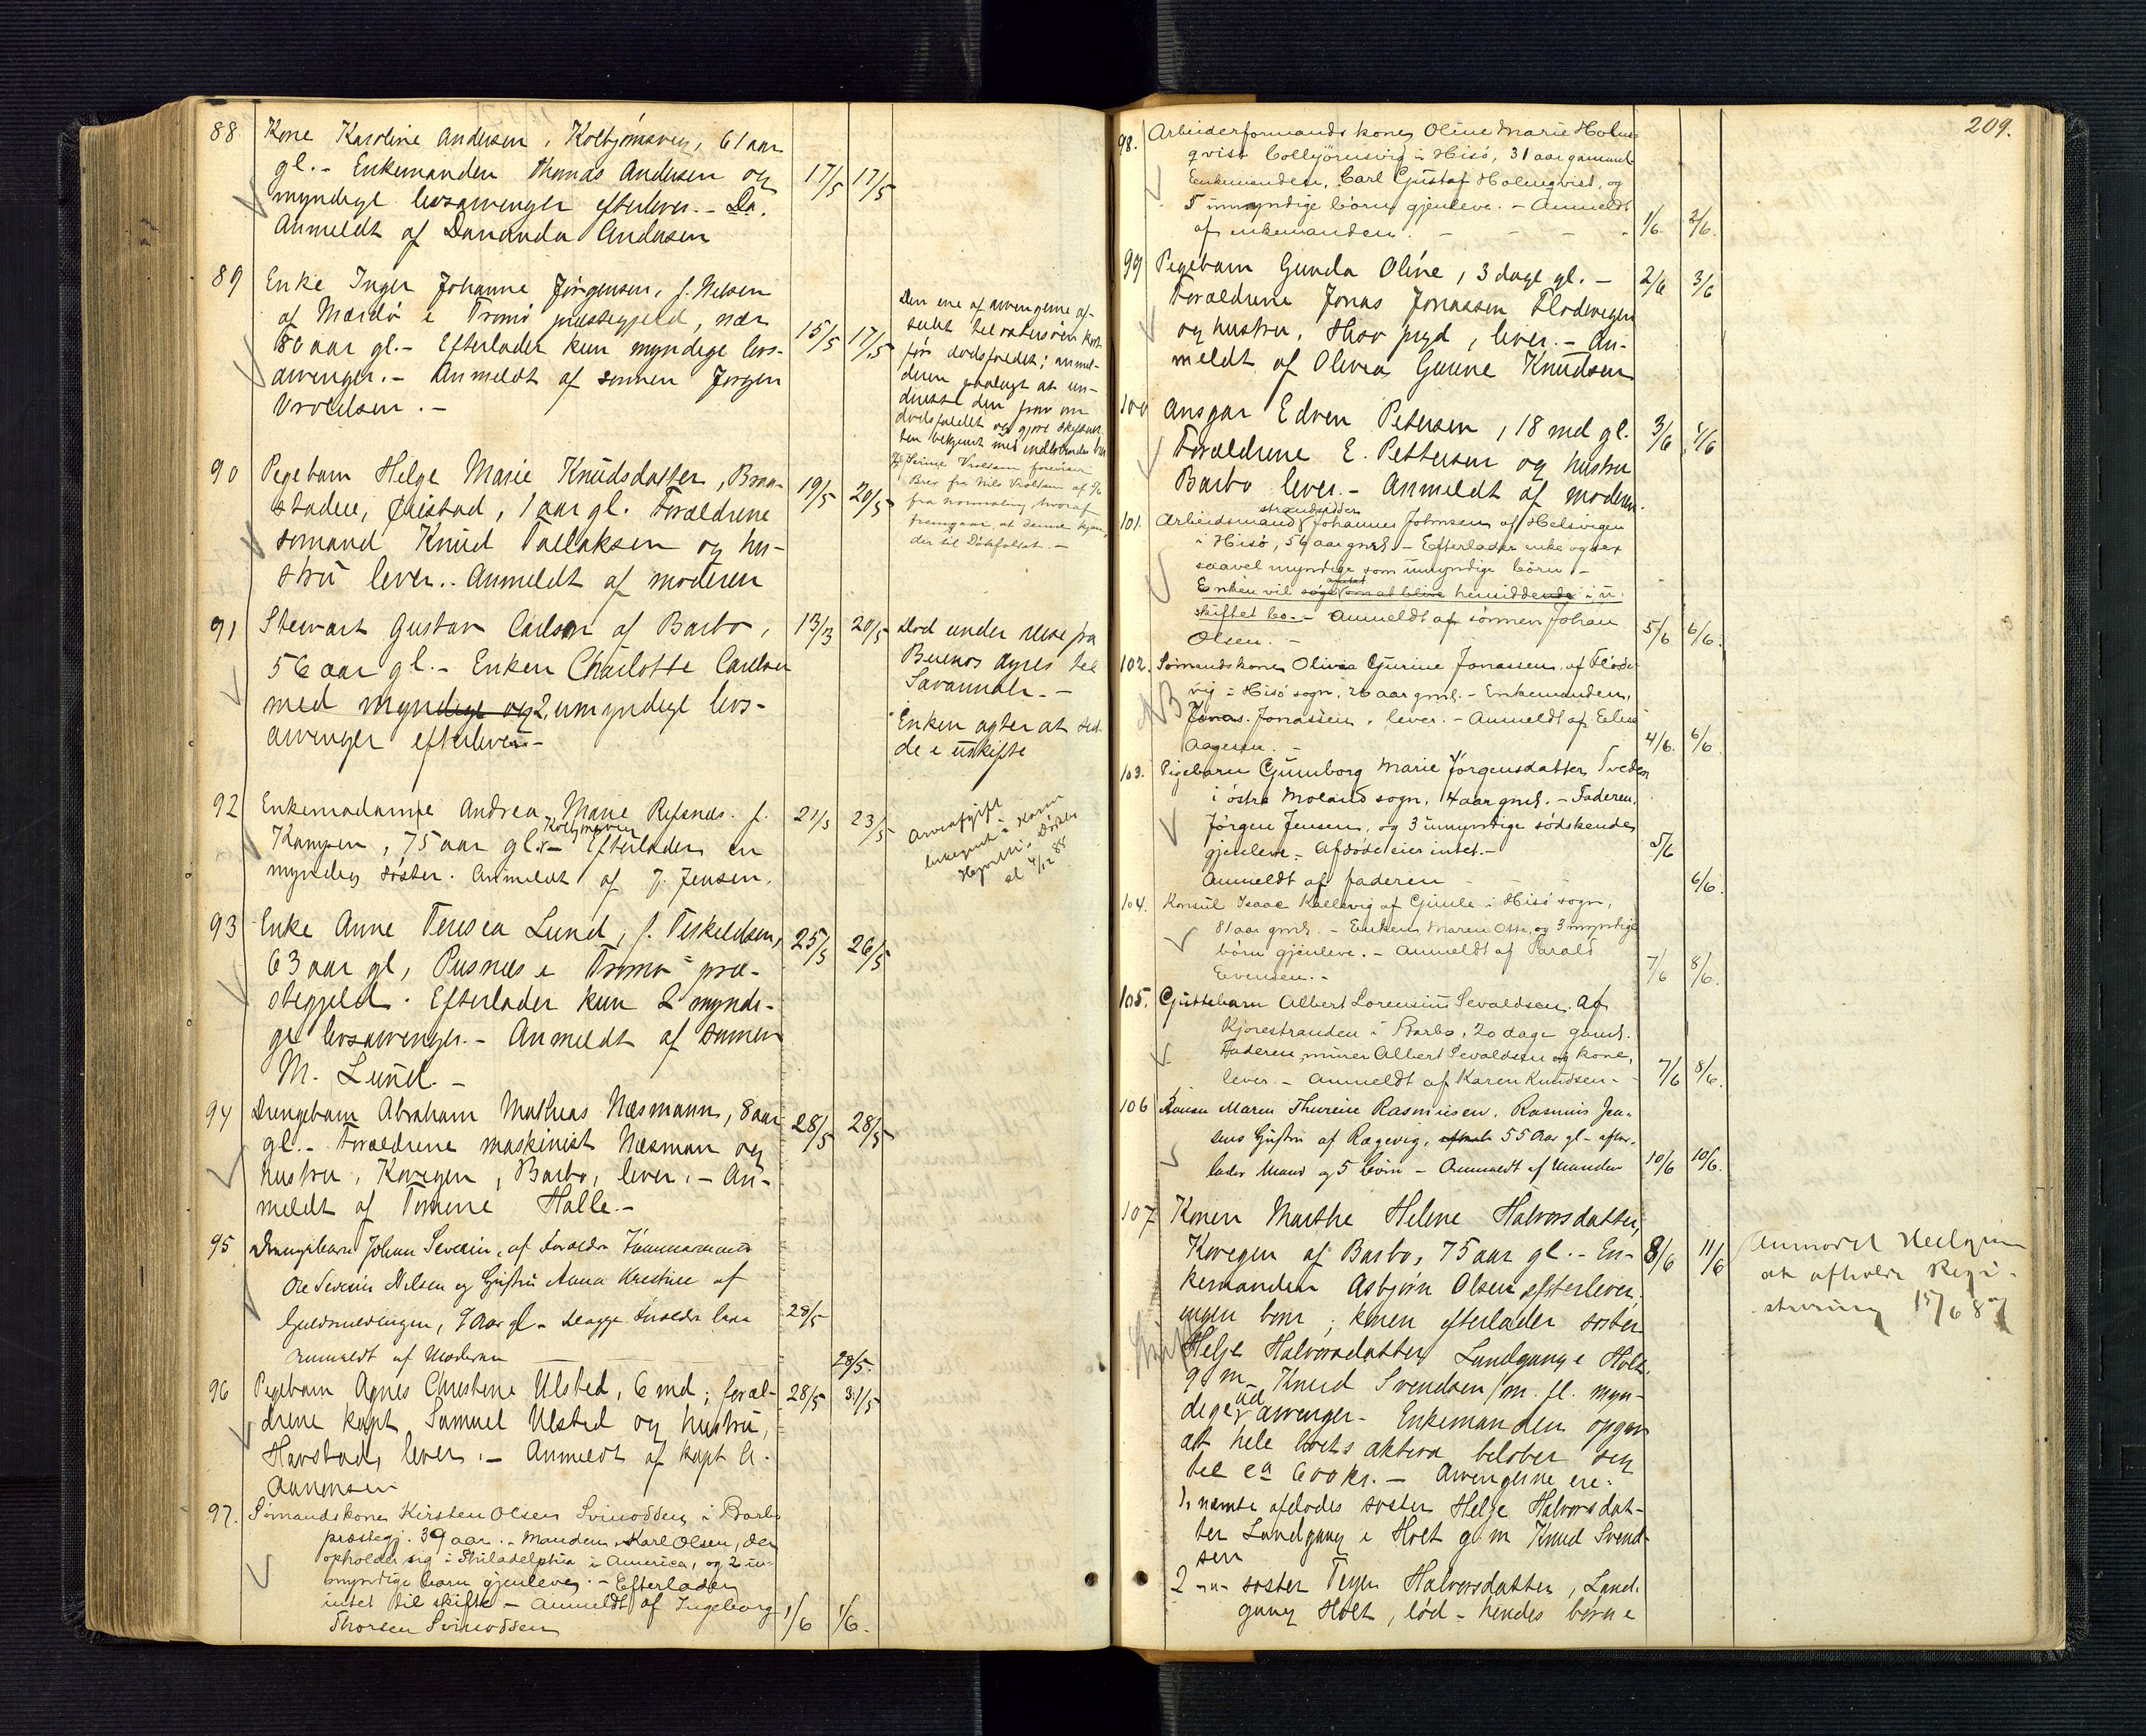 88 Kone Karoline Andersen, Kolbjørnsvig, 61 aar
gl. - Enkemanden Thomas Andersen og 17/5 17/5
myndige livsarvinger efterlever. - Da.
Anmeldt af Dananda Andersen
89 Enke Inger Johanne Jørgensen, f. Nielsen
af Mærdø i Tromø præstegjeld, nær
80 aar gl. - Efterlader kun myndige livs- 15/5 17/5
arvinger. - Anmeldt af sønnen Jørgen
Vroldsen. -
Den ene af arvingerne af-
seilt til østersøen kort
før dødsfaldet; anmel-
deren paalagt at un-
derrette den fravæ om
dødsfaldet og gjøre skifteret-
ten bekjent med indløbende brev
Brev fra Nils Vroldsen af
fra hvoraf
fremgaar, at denne kjen-
der til Dødsfaldet. -
90 Pigebarn Helge Marie Knudsdatter, Braa- 19/5 20/5
staden, Øiestad, 1 aar gl. Forældrene
sømand Knud Tallaksen og hu-
stru lever. - Anmeldt af moderen
91 Stewart Gustav Carlson af Barbo, 13/3 20/5
56 aar gl. - Enken Charlotte Carlson
med myndige og 2 umyndige livs-
arvinger efterlever -
Død under reise fra
Buenos Ayres til
Savannah. -
Enken agter at sid-
de i uskifte
92 Enkemadame Andrea Marie Refsnes f. 21/5 23/5
Kolbjørnsvig
Kampen, 75 aar gl. - Efterlader en
myndig søster. Anmeldt af J. Jensen.
Arveafgift
4/12 88
93 Enke Anne Teresea Lund, f. Terkeldsen, 25/5 26/5
63 aar gl, Pusnes i Tromø præ-
stegjeld. Efterlader kun 2 myndi-
ge livsarvinger. - Anmeldt af sønnen
M. Lund. -
94 Drengebarn Abraham Mathias Næsmann, 8 aar 28/5 28/5
gl. - Forældrene maskinist Næsman og
hustru, Kovegen, Barbo, lever. - An-
meldt af Tomine Halle. -
95 Drengebarn Johan Severin, af Forældre Tømmermand
Ole Severin Nilsen og Hustru Anna Kristine af
Guldsmedengen, 9 Aar gl - begge Forældre leve 28/5
Anmeldt af Moderen 28/5.
96 Pigebarn Agnes Christine Ulsted, 6 md; foræl- 28/5 31/5
drene kapt Samuel Ulsted og hustru,
Havstad, lever. - Anmeldt af kapt A.
Aanonsen
97. Sømandskone Kirsten Olsen Svinodden i Barbo
præstegj. 39 aar. - Manden, Karl Olsen, der
opholder sig i Philadelphia i America, og 2 u-
myndige børn gjenlever. - Efterlader
intet til skifte - Anmeldt af Ingeborg 1/6 1/6.
Thorsen Svinodden
209.
98. Arbeiderformands kone Oline Marie Holm-
qvist Colbjørnsvig i Hisö, 31 aar gammel
Enkemanden, Carl Gustaf Holmqvist, og
5 umyndige börn gjenleve. - Anmeldt
af enkemanden. - - - - 1/6 2/6.
99 Pigebarn Gunda Oline, 3 dage gl. - 2/6 3/6
Forældrene Jonas Jonassen Flødevigen
og hustru, Hisø prgd, lever. - An-
meldt af Olivia Gurine Knudsen
100 Ansgar Edven Petersen, 18 md gl. 3/6 4/6
Forældrene E. Pettersen og hustru
Barbo lever. - Anmeldt af moderen.
strandsidder
101. Arbeidsmand Johannes Johnsen af Helsvigen
i Hisö, 56 aar gml. - Efterlader enke og sex
saavel myndige som umyndige börn. -
Enken vil henidde i u-
skiftet bo. - Anmeldt af sönnen Johan 5/6 6/6.
Olsen. -
102. Sömandskone Olivia Gurine Jonassen. af Flöde-
NB vig i Hisö sogn, 26 aar gml. - Enkemanden,
Jonas Jonassen, lever. - Anmeldt af Eline
Aagesen. - 4/6. 6/6.
103. Pigebarn Gunborg Marie Jörgensdatter Sveden
i östre Moland sogn, 4 aar gml. - Faderen,
Jörgen Jensen, og 3 umyndige södskende
gjenleve. - Afdöde eier intet. - 5/6
Anmeldt af faderen - - - 6/6.
104. Konsul Isaac Kallevig af Gimle i Hisö sogn,
81 aar gml. - Enken, Maren Otte, og 3 myndige
börn gjenleve. - Anmeldt af Parald 7/6 8/6.
Evensen. -
105. Guttebarn Albert Lorensius Sevaldsen. Af
Kjorestranden i Barbo, 20 dage gaml.
Faderen, minør Albert Sevaldsen og kone,
lever. - Anmeldt af Karen Knudsen. - 7/6 8/6.
106 Konen Maren Thurine Rasmussen, Rasmus Jen-
sens Hustru af Rægevig, 55 Aar gl - efter-
lader Mand og 5 Börn - Anmeldt af Manden 10/6 10/6.
107 Konen Marthe Helene Halvorsdatter,
Kovegen af Barbo, 75 aar gl. - En- 8/6 11/6
kemanden Asbjørn Olsen efterlever,
ingen børn; konen efterlader søster
Helje Halvorsdatter Lundgang i Holt,
g. m. Knud Svendsen m. fl. myn-
ud
dige arvinger. - Enkemanden opgav
at hele boets aktiva beløber sig
til ca 600 kr. - Arvingerne ere:
1, nævnte afdødes søster Helje Halvorsdat-
ter Lundgang i Holt g. m Knud Svend-
sen
2 -"- søster Tegen Halvorsdatter, Land-
gang Holt, død - hendes børn i
Anmodet
at afholde Regi-
strering 15/6 87